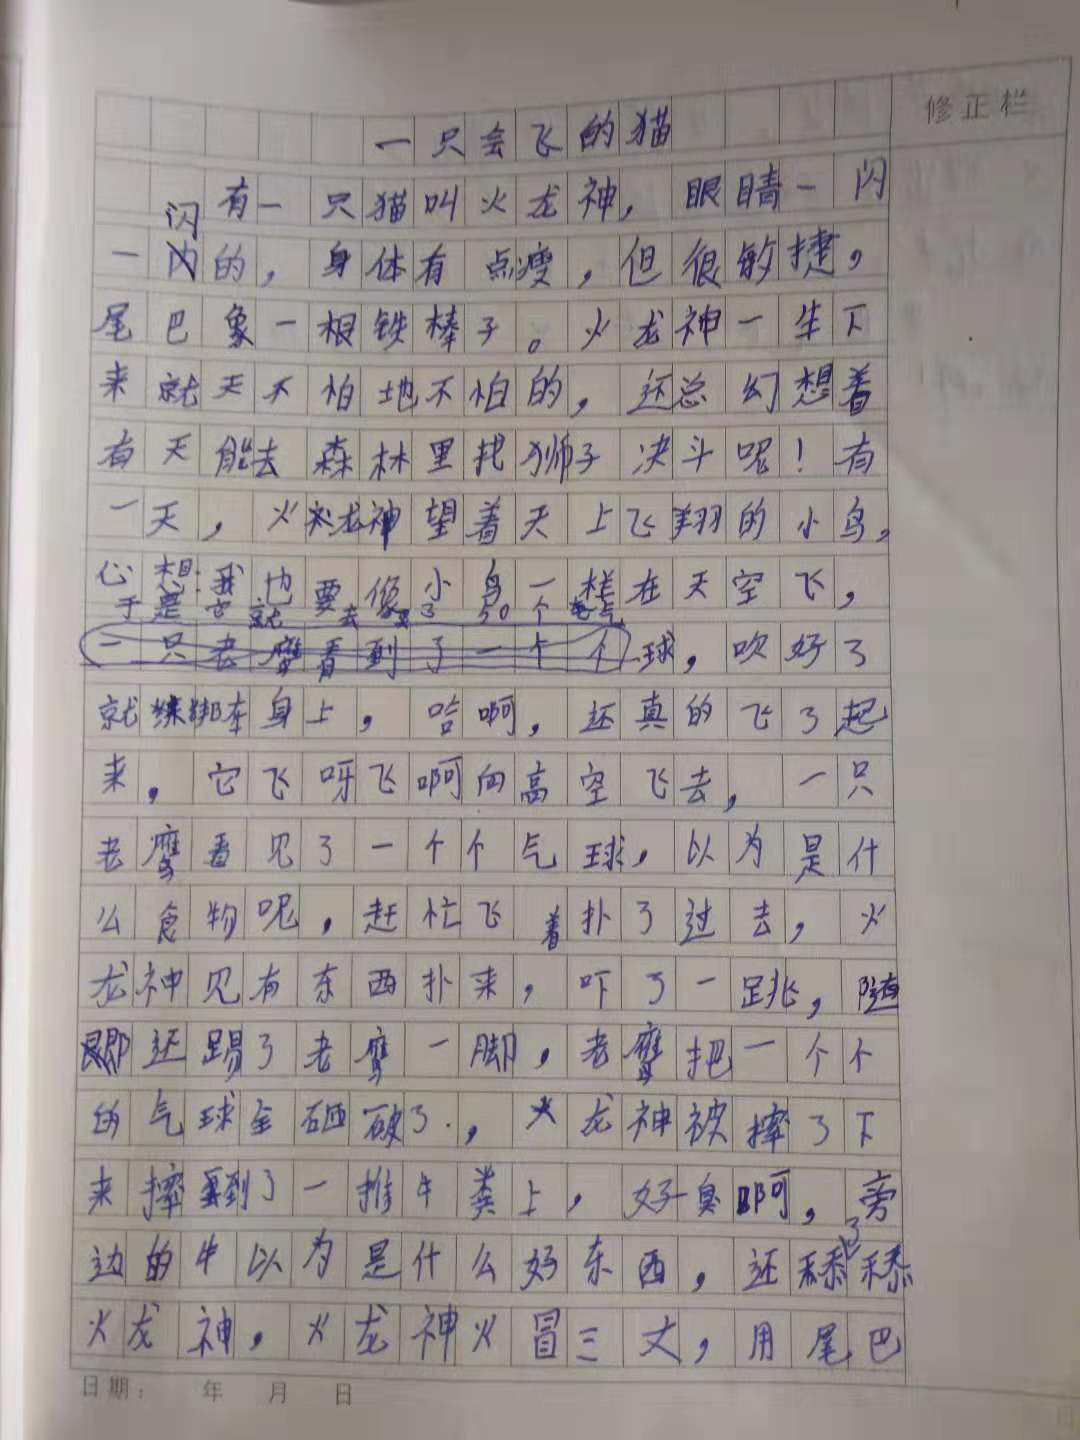 修正栏
一只会飞的猫
有一只猫叫火龙神，眼睛一闪
一闪的，身体有点瘦，但很敏捷，
尾巴象一根铁棒子。火龙神一生下
来就天不怕地不怕的，还总幻想着
有天能去森林里找狮子决斗呢！有
一天，火龙神望着天上飞翔的小鸟，
心想：我也要像小鸟一样在天空飞，
于是它就去买了50个气
一只老鹰看到了一个个球，吹好了
就绑在身上，哈啊，还真的飞了起
来，它飞呀飞啊向高空飞去，一只
老鹰看见了一个个气球，以为是什
么食物呢，赶忙飞着扑了过去，火
龙神见有东西扑来，吓了一跳，随
即还踢了老鹰一脚，老鹰把一个个
的气球全砸破了，火龙神被摔了下
来摔到了一推牛粪上，好臭啊，旁
边的牛以为是什么好东西，还舔了舔
火龙神，火龙神火冒三丈，用尾巴
日期： 年 月 日